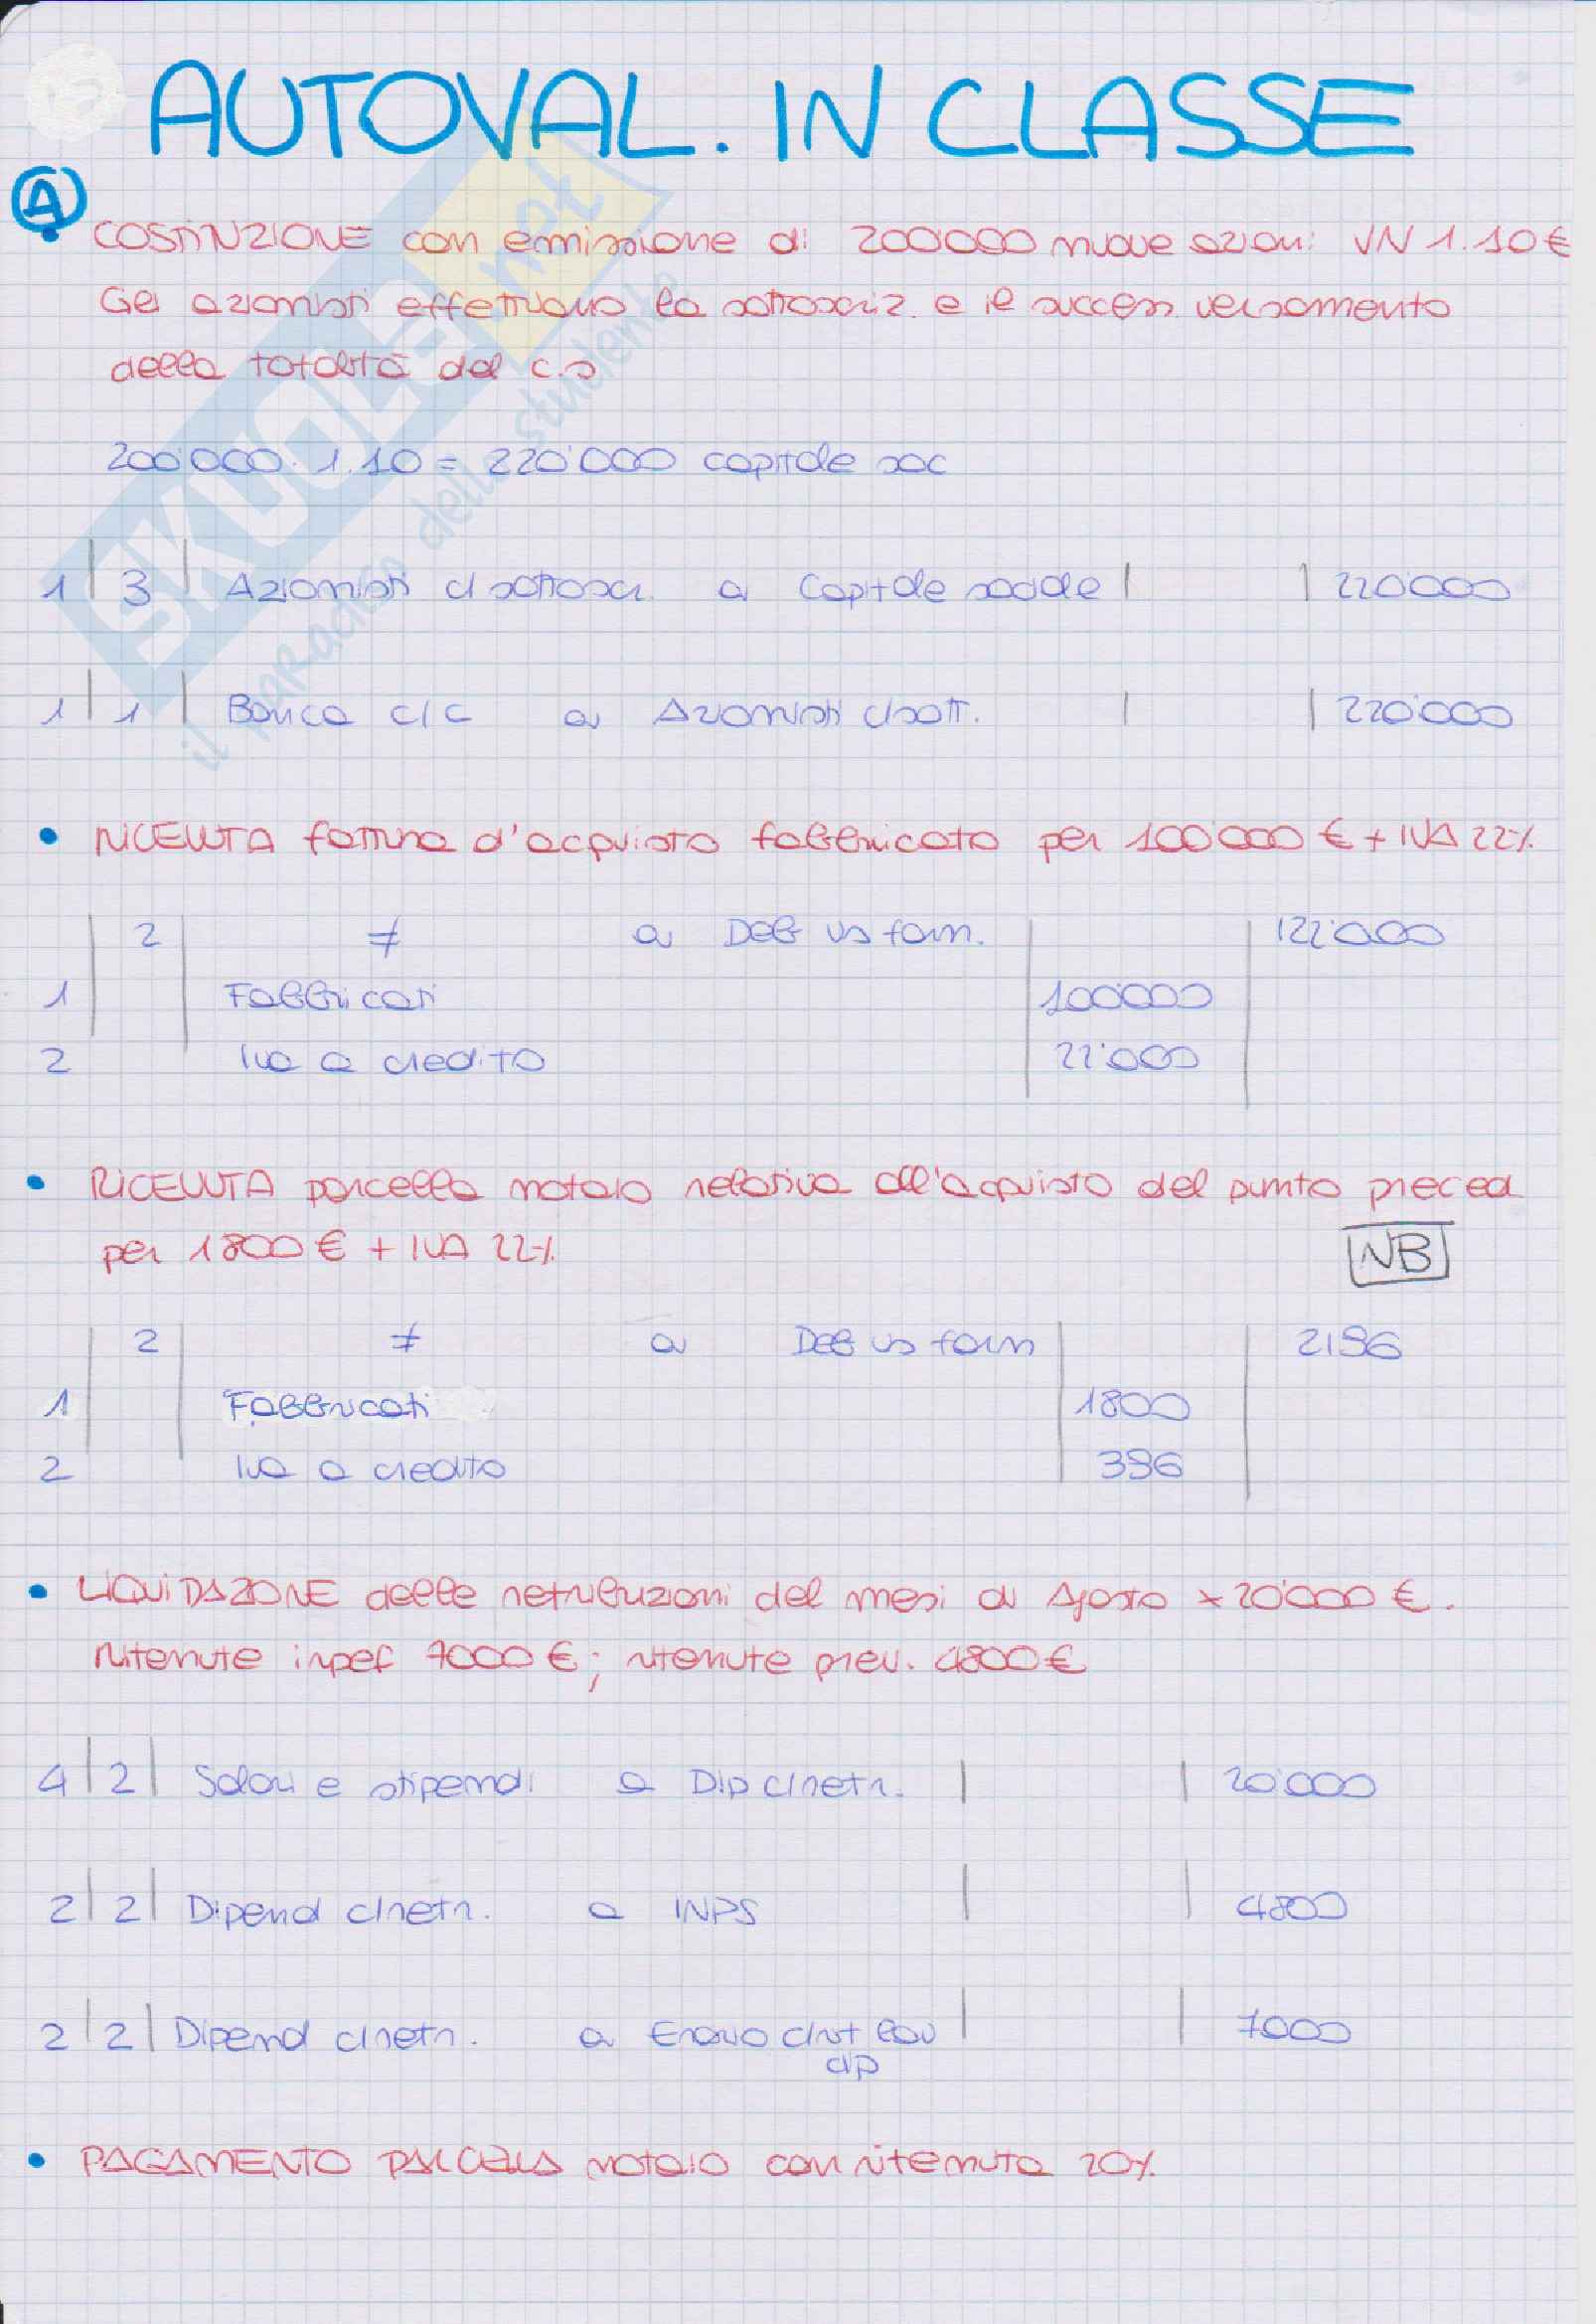 AUTOVAL. IN CLASSE
A
• COSTITUZIONE con emissione di 200'000 nuove azioni VN 1.10€
Gli azionisti effettuano la sottoscriz. e il success. versamento
della totalità del c.s
200'000 · 1.10 = 220'000 capitale soc
1 | 3 | Azionisti c/sottoscr. a Capitale sociale | | 220'000
1 | 1 | Banca c/c a Azionisti c/sott. | | 220'000
• RICEVUTA fattura d'acquisto fabbricato per 100'000 € + IVA 22%
2 ≠ a Deb vs forn. 122'000
1 Fabbricati 100'000
2 Iva a credito 22'000
• RICEVUTA parcella notaio relativa all'acquisto del punto preced
per 1800 € + IVA 22% NB
2 ≠ a Deb vs forn 2196
1 Fabbricati 1800
2 Iva a credito 396
• LIQUIDAZIONE delle retribuzioni del mesi di Agosto x 20'000 €.
Ritenute irpef 7000 €; ritenute prev. 4800 €
4 | 2 | Salari e stipendi a Dip c/retr. | | 20'000
2 | 2 | Dipend c/retr. a INPS | | 4800
2 | 2 | Dipend c/retr. a Erario c/rit lav | | 7000
dip
• PAGAMENTO PARCELLA notaio con ritenuta 20%
SKUOLA.net
il paradiso dello studente